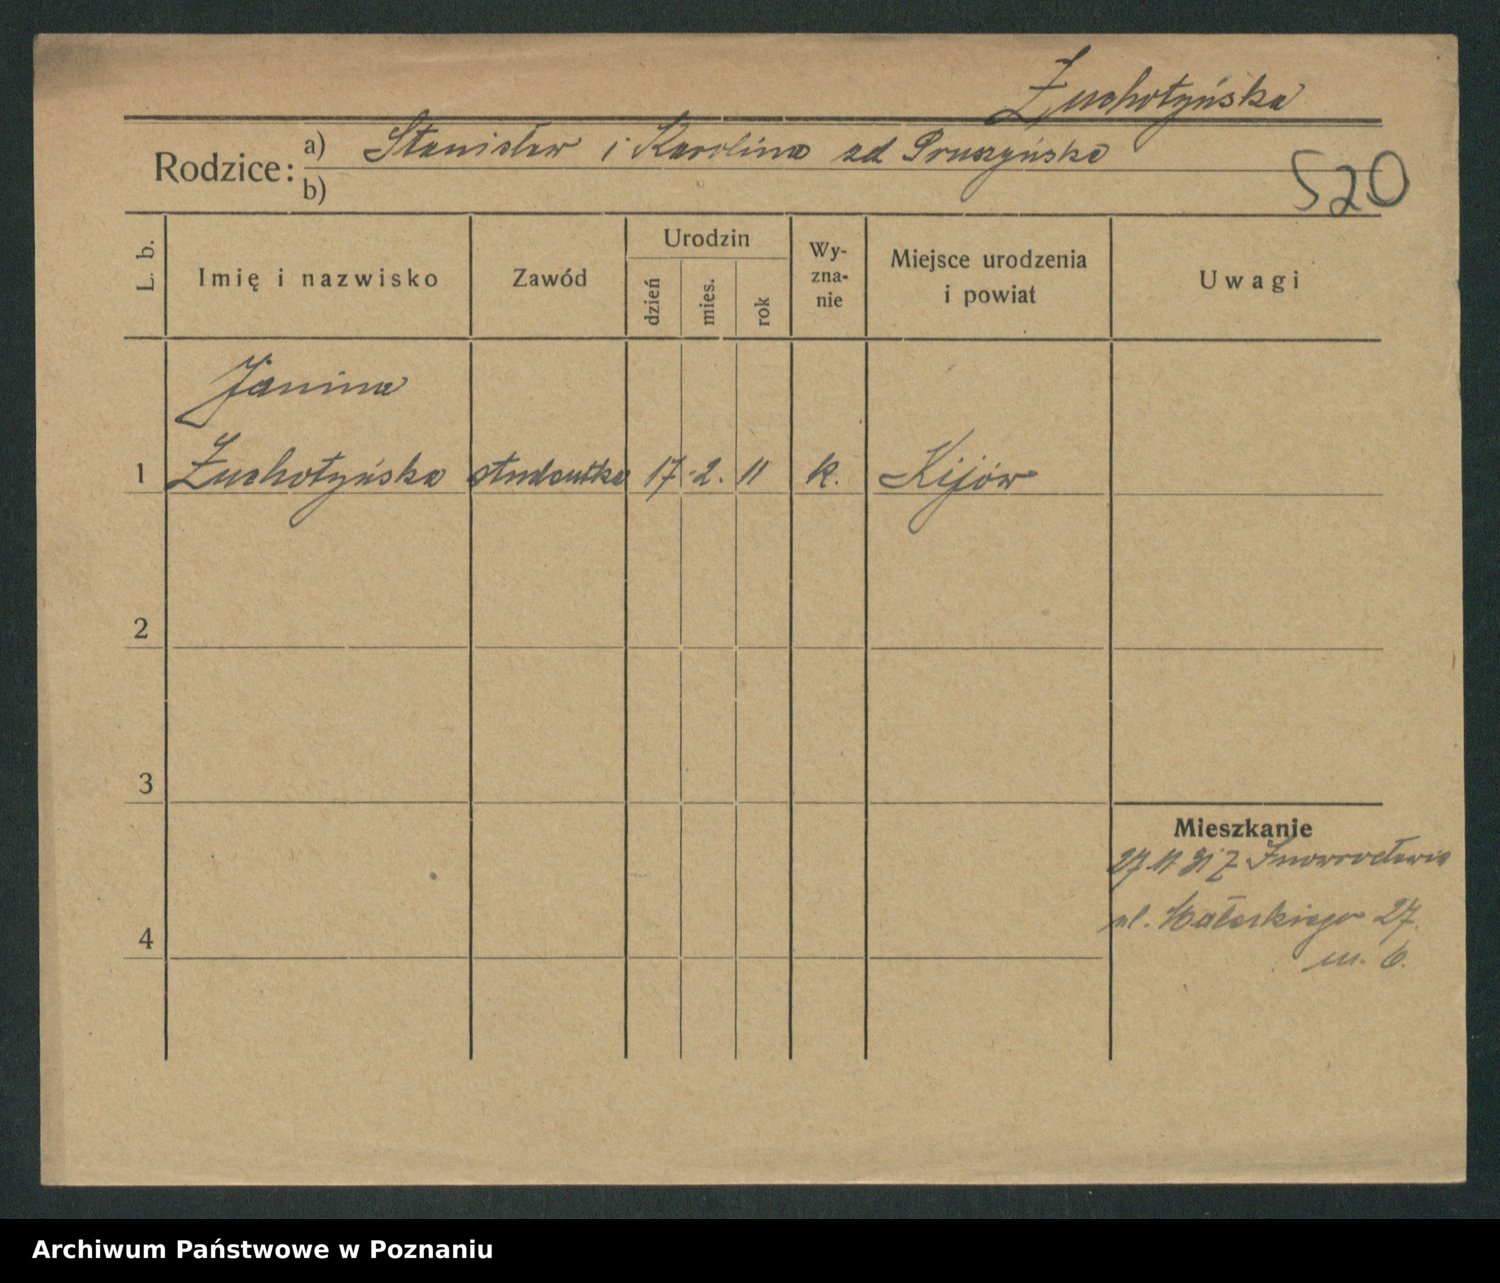 Żuchotyńska
Rodzice: a) Stanisław i Karolina zd Pruszyńska
b)
520
L. b.
Imię i nazwisko
Zawód
Urodzin
dzień
mies.
rok
Wy-
zna-
nie
Miejsce urodzenia
i powiat
Uwagi
Janina
1 Żuchotyńska studentka 17. 2. 11 k. Kijów
2
3
Mieszkanie
27.11.31 z Inowrocławia
4
ul. 27.
m. 6.
Archiwum Państwowe w Poznaniu